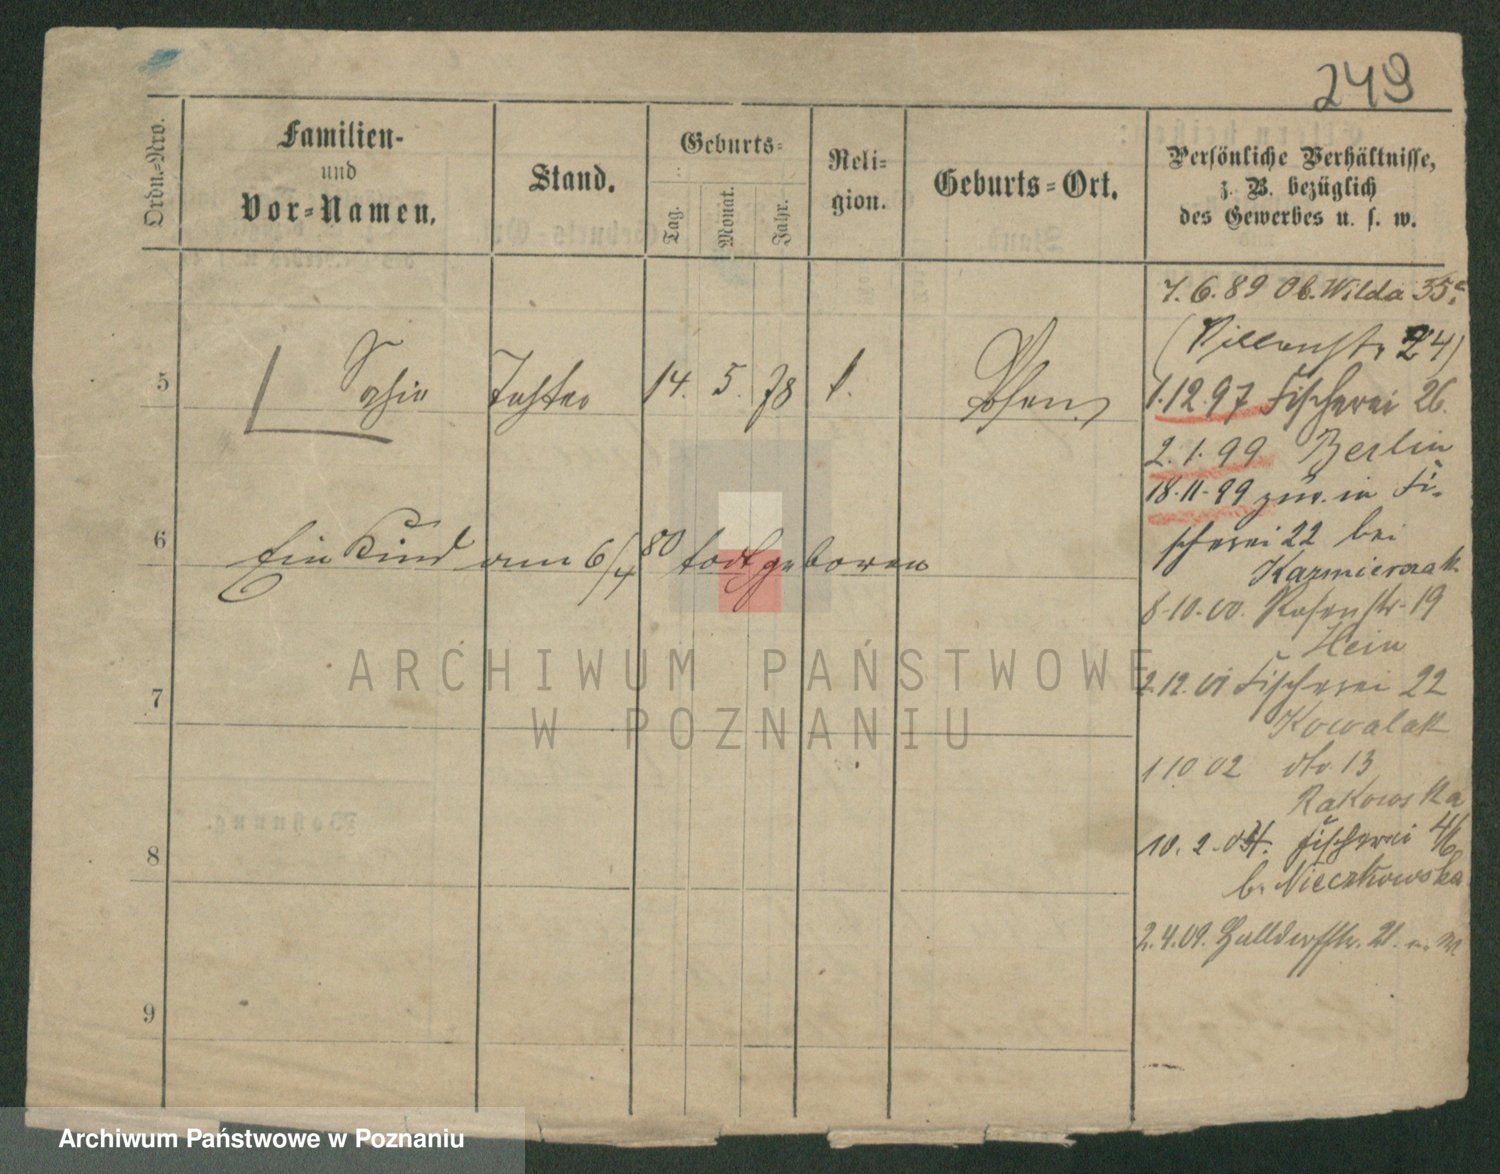 249
Ordn.-Nro.
Familien-
und
Vor-Namen.
Stand.
Geburts-
Tag.
Monat.
Jahr.
Reli-
gion.
Geburts-Ort.
Persönliche Verhältnisse,
z. B. bezüglich
des Gewerbes u. s. w.
7.6.89 Ob. Wilda 35a
( 24)
5 Sofie Tochter 14. 5. 78 Posen
1.12.97 Fischerei 26.
2.1.99 Berlin
18.11.99 zur. in Fi-
scherei 22 bei
Kazmierczak
6 Ein Kind am 6/4 80 todtgeboren
8.10.00. Rosenstr. 19
Hein
2.12.01 Fischerei 22
Kowalak
7
1 10 02 dto 13
Rakowska
10.2.04. Fischerei 4/6
b. Nieczkowska
8
2.4.09. 21.
9
ARCHIWUM PAŃSTWOWE
W POZNANIU
Archiwum Państwowe w Poznaniu